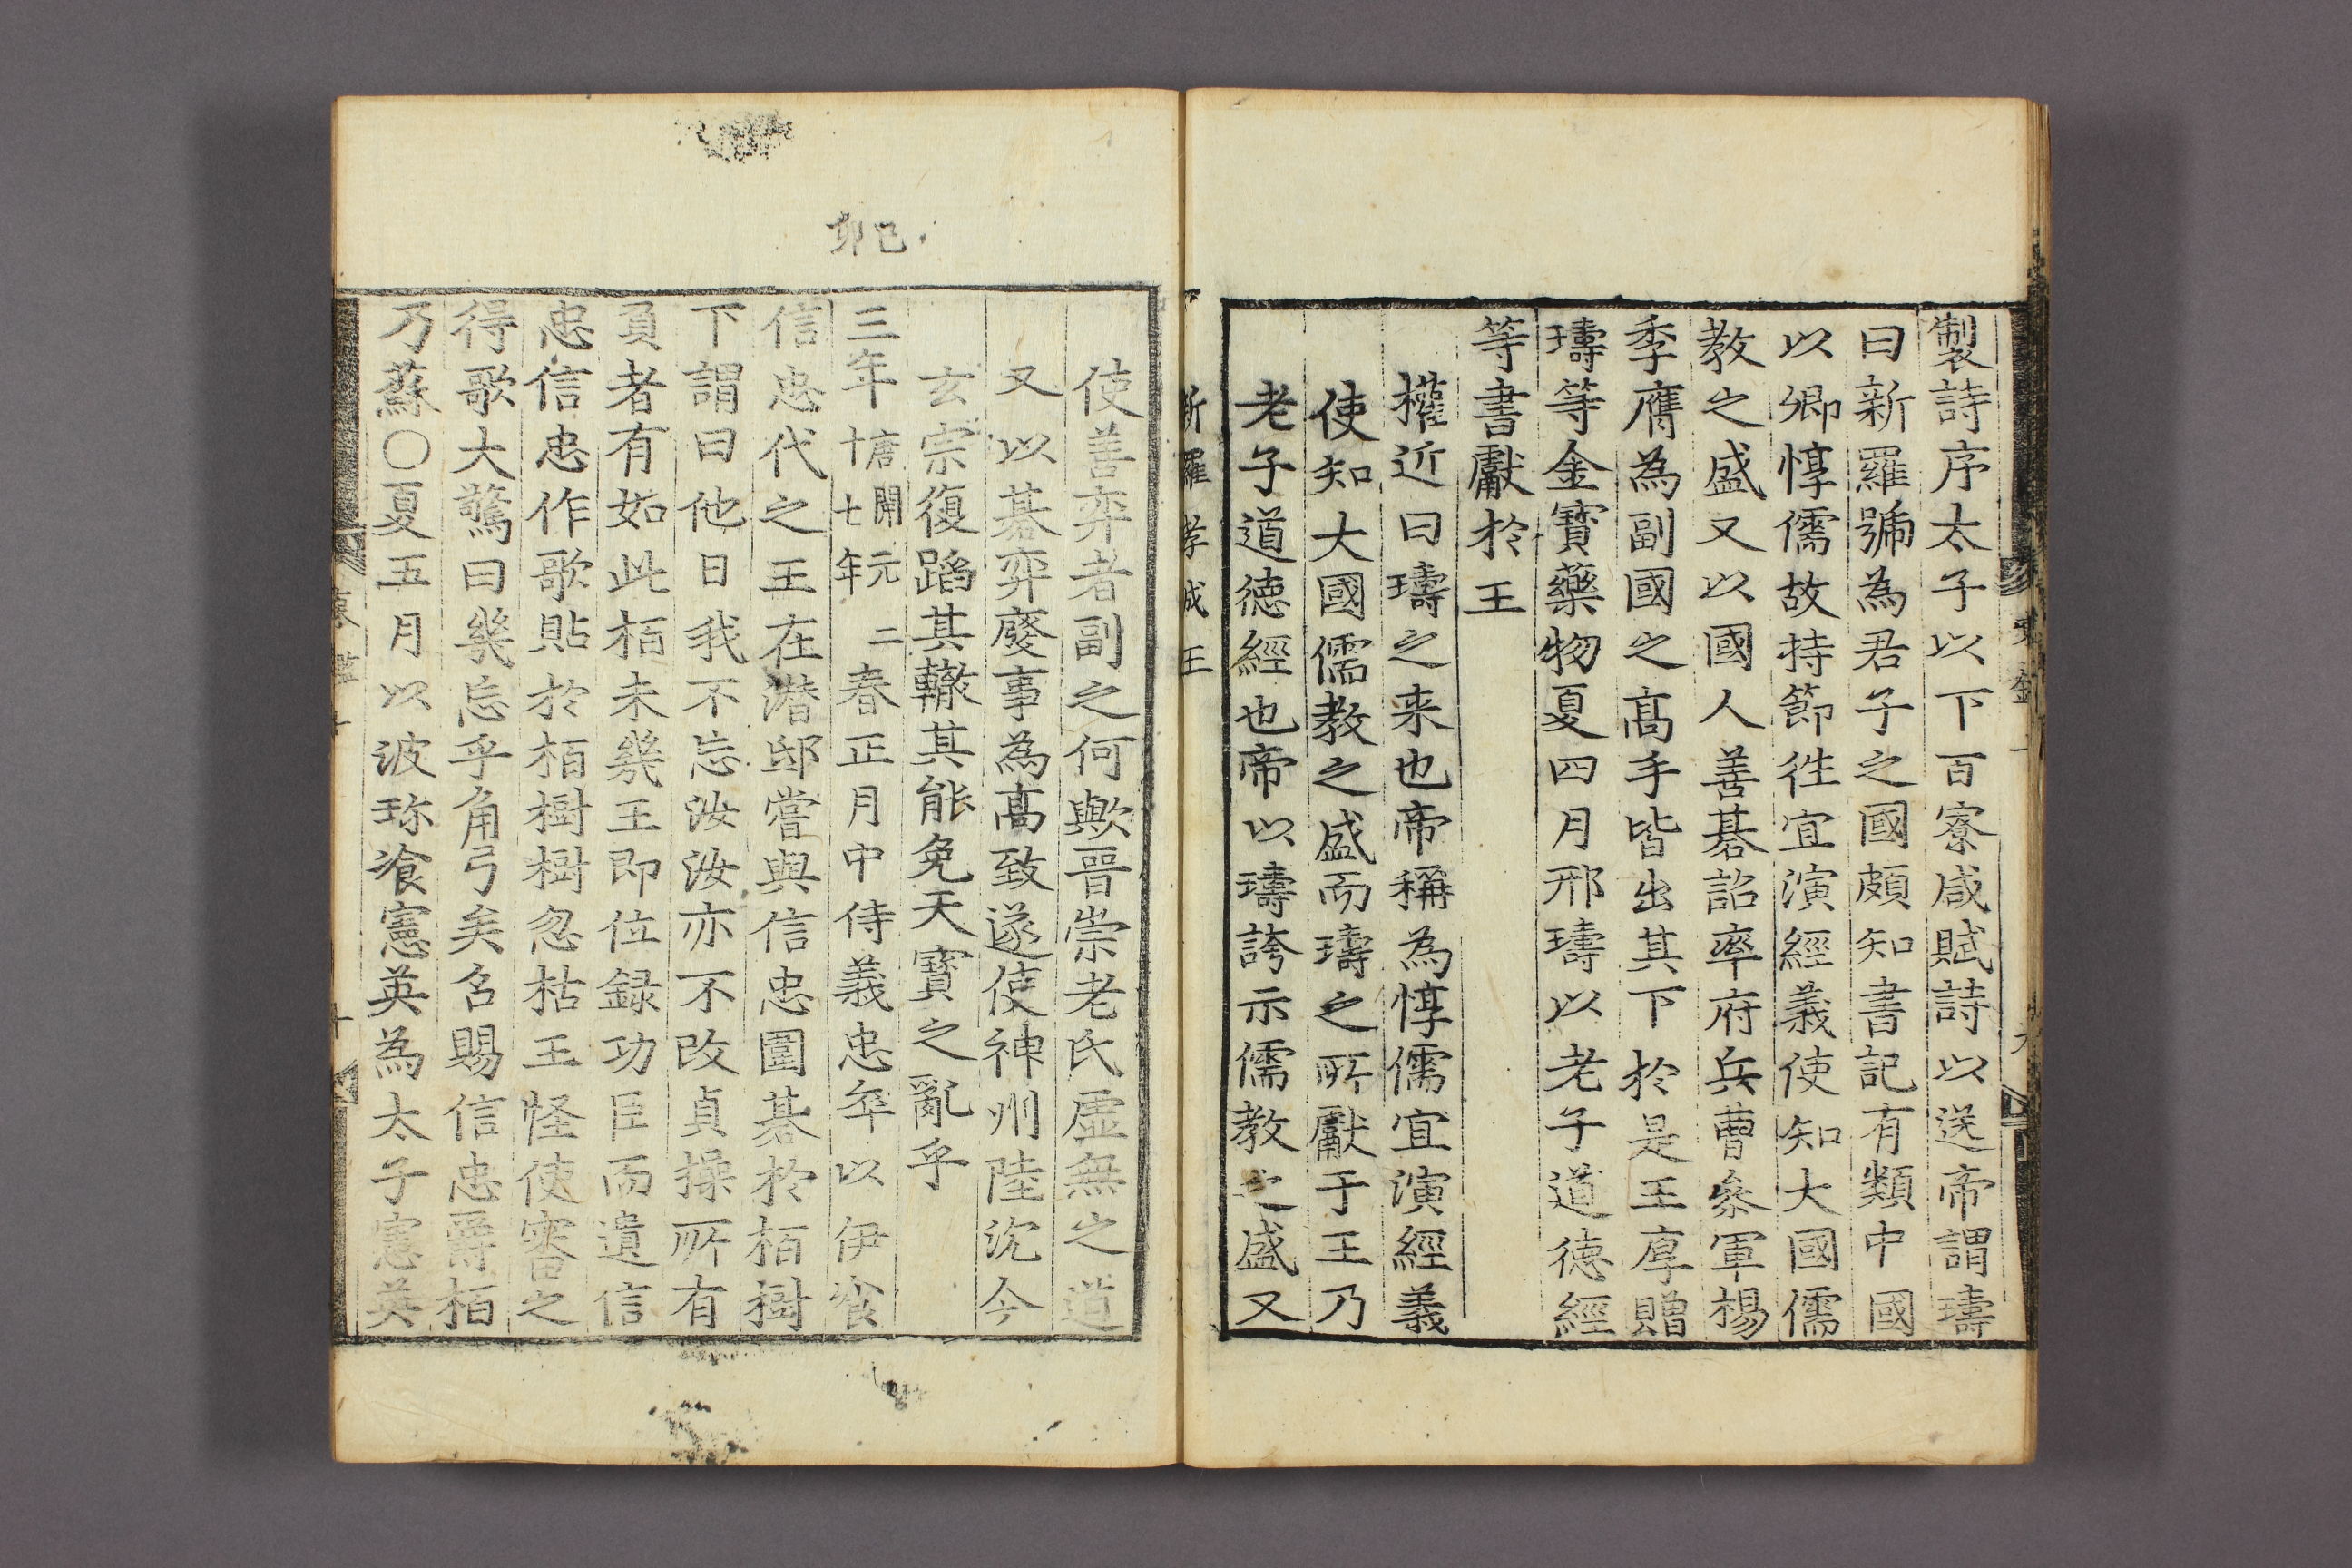 製詩序太子以下百寮咸賦詩以送帝謂璹
曰新羅號為君子之國頗知書記有類中國
以卿惇儒故持節徃宜演經義使知大國儒
教之盛又以國人善碁詔率府兵曹叅軍楊
季膺為副國之髙手皆出其下於是王厚贈
璹等金寶藥物夏四月邢璹以老子道德經
等書獻於王
權近曰璹之来也帝稱為惇儒宜演經義
使知大國儒教之盛而璹之所獻于王乃
老子道德經也帝以璹誇示儒教之盛又
新羅孝成王
己卯
使善弈者副之何歟晉崇老氏虛無之道
又以碁弈廢事為髙致遂使神州陸沈今
玄宗復蹈其轍其能免天寶之亂乎
三年唐開元二十七年春正月中侍義忠卒以伊飡
信忠代之王在潛邸嘗與信忠圍碁於栢樹
下謂曰他日我不忘汝汝亦不改貞操所有
負者有如此栢未幾王即位録功臣而遺信
忠信忠作歌貼於栢樹樹忽枯王怪使審之
得歌大驚曰幾忘乎角弓矣召賜信忠爵栢
乃蘇〇夏五月以波珎飡憲英為太子憲英